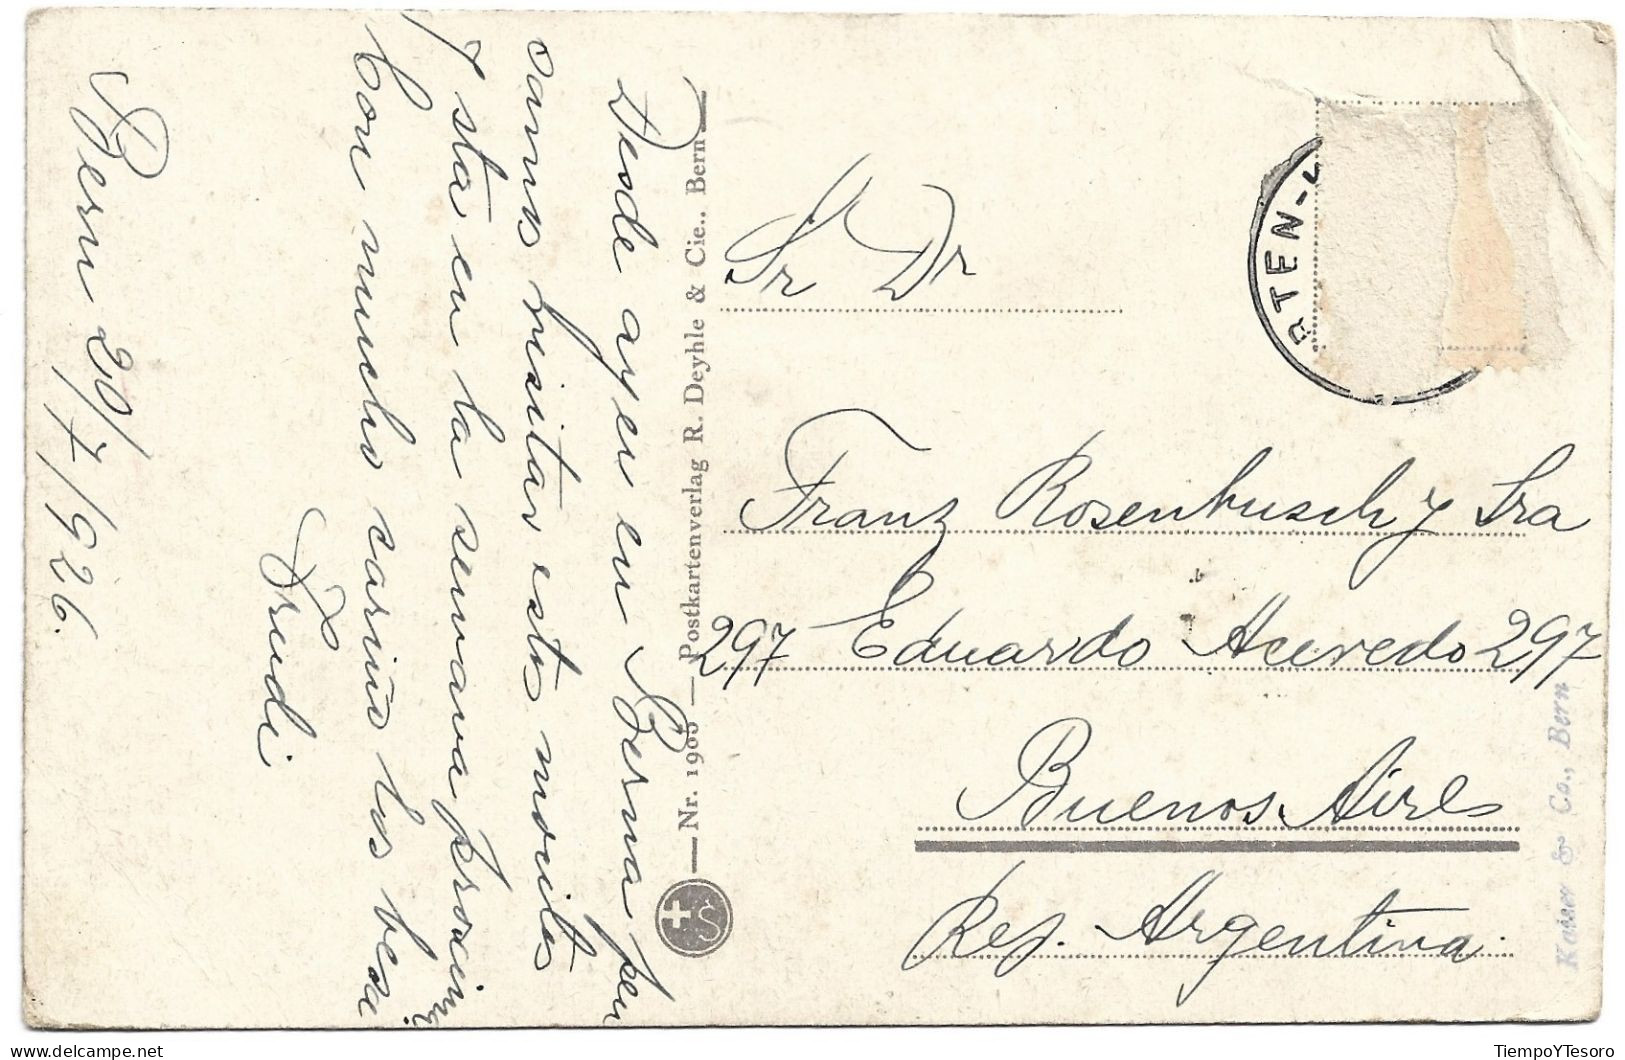 Bern 20/7/926.
Desde ayer en Berna pen
samos visitar estos novitos
y sta en la semava proxima
Con mucho cariño los besa
Trudi
Nr. 1905 — Postkartenverlag R. Deyhle & Cie., Bern
RTEN-
Sr Dr
Franz Rosenbusch y Sra
297 Eduardo Acevedo 297
Buenos Aires
Rep. Argentina.
Kaiser & Co., Bern
TiempoYTesoro